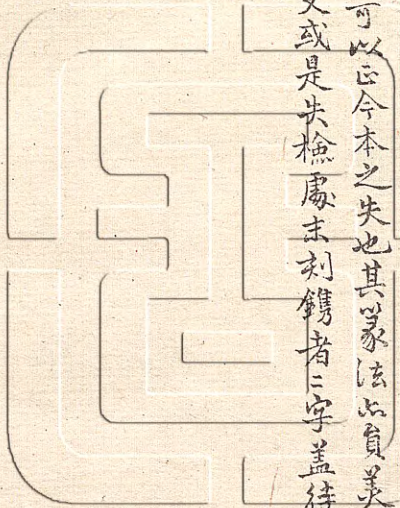 可以正今本之失也其篆法亦負美
文或是失檢處末刻鐫者二字盖待